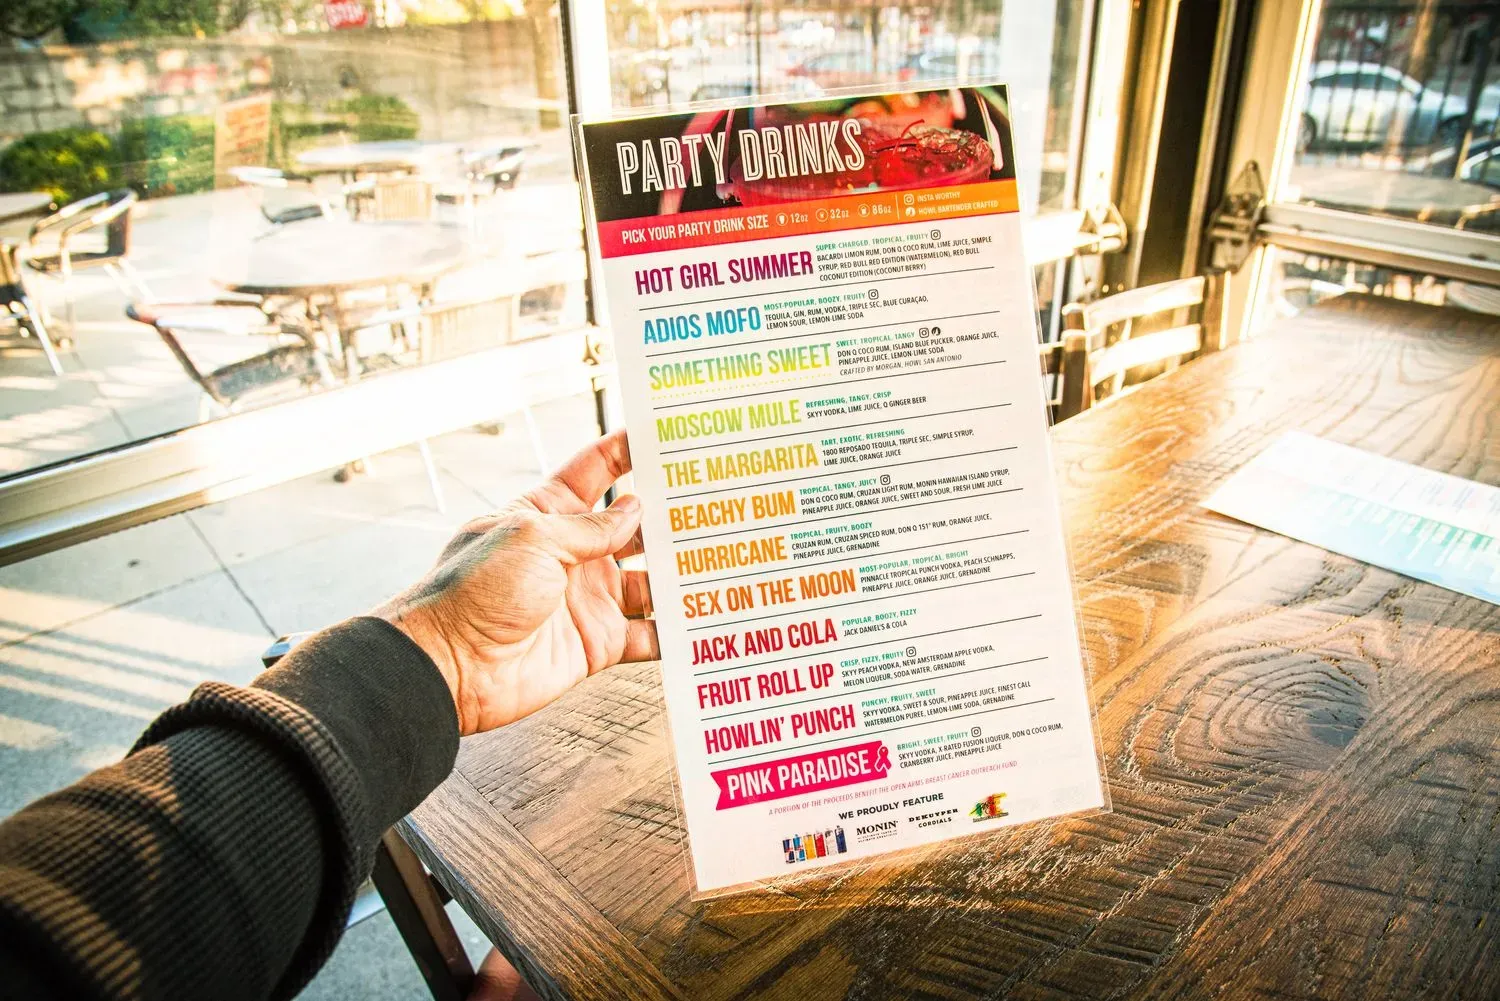 STOP
PARTY DRINKS
PICK YOUR PARTY DRINK SIZE 12OZ 32OZ 86OZ
INSTA WORTHY
HOWL BARTENDER CRAFTED
HOT GIRL SUMMER
SUPER-CHARGED, TROPICAL, FRUITY
BACARDI LIMON RUM, DON Q COCO RUM, LIME JUICE, SIMPLE
SYRUP, RED BULL RED EDITION (WATERMELON), RED BULL
COCONUT EDITION (COCONUT BERRY)
ADIOS MOFO
MOST-POPULAR, BOOZY, FRUITY
TEQUILA, GIN, RUM, VODKA, TRIPLE SEC, BLUE CURAÇAO,
LEMON SOUR, LEMON-LIME SODA
SOMETHING SWEET
SWEET, TROPICAL, TANGY
DON Q COCO RUM, ISLAND BLUE PUCKER, ORANGE JUICE,
PINEAPPLE JUICE, LEMON-LIME SODA
CRAFTED BY MORGAN, HOWL SAN ANTONIO
MOSCOW MULE
REFRESHING, TANGY, CRISP
SKYY VODKA, LIME JUICE, Q GINGER BEER
THE MARGARITA
TART, EXOTIC, REFRESHING
1800 REPOSADO TEQUILA, TRIPLE SEC, SIMPLE SYRUP,
LIME JUICE, ORANGE JUICE
BEACHY BUM
TROPICAL, TANGY, JUICY
DON Q COCO RUM, CRUZAN LIGHT RUM, MONIN HAWAIIAN ISLAND SYRUP,
PINEAPPLE JUICE, ORANGE JUICE, SWEET AND SOUR, FRESH LIME JUICE
HURRICANE
TROPICAL, FRUITY, BOOZY
CRUZAN RUM, CRUZAN SPICED RUM, DON Q 151° RUM, ORANGE JUICE,
PINEAPPLE JUICE, GRENADINE
SEX ON THE MOON
MOST-POPULAR, TROPICAL, BRIGHT
PINNACLE TROPICAL PUNCH VODKA, PEACH SCHNAPPS,
PINEAPPLE JUICE, ORANGE JUICE, GRENADINE
JACK AND COLA
POPULAR, BOOZY, FIZZY
JACK DANIEL'S & COLA
FRUIT ROLL UP
CRISP, FIZZY, FRUITY
SKYY PEACH VODKA, NEW AMSTERDAM APPLE VODKA,
MELON LIQUEUR, SODA WATER, GRENADINE
HOWLIN' PUNCH
PUNCHY, FRUITY, SWEET
SKYY VODKA, SWEET & SOUR, PINEAPPLE JUICE, FINEST CALL
WATERMELON PUREE, LEMON-LIME SODA, GRENADINE
PINK PARADISE
BRIGHT, SWEET, FRUITY
SKYY VODKA, X-RATED FUSION LIQUEUR, DON Q COCO RUM,
CRANBERRY JUICE, PINEAPPLE JUICE
A PORTION OF THE PROCEEDS BENEFIT THE OPEN ARMS BREAST CANCER OUTREACH FUND
WE PROUDLY FEATURE
MONIN
DEKUYPER
CORDIALS